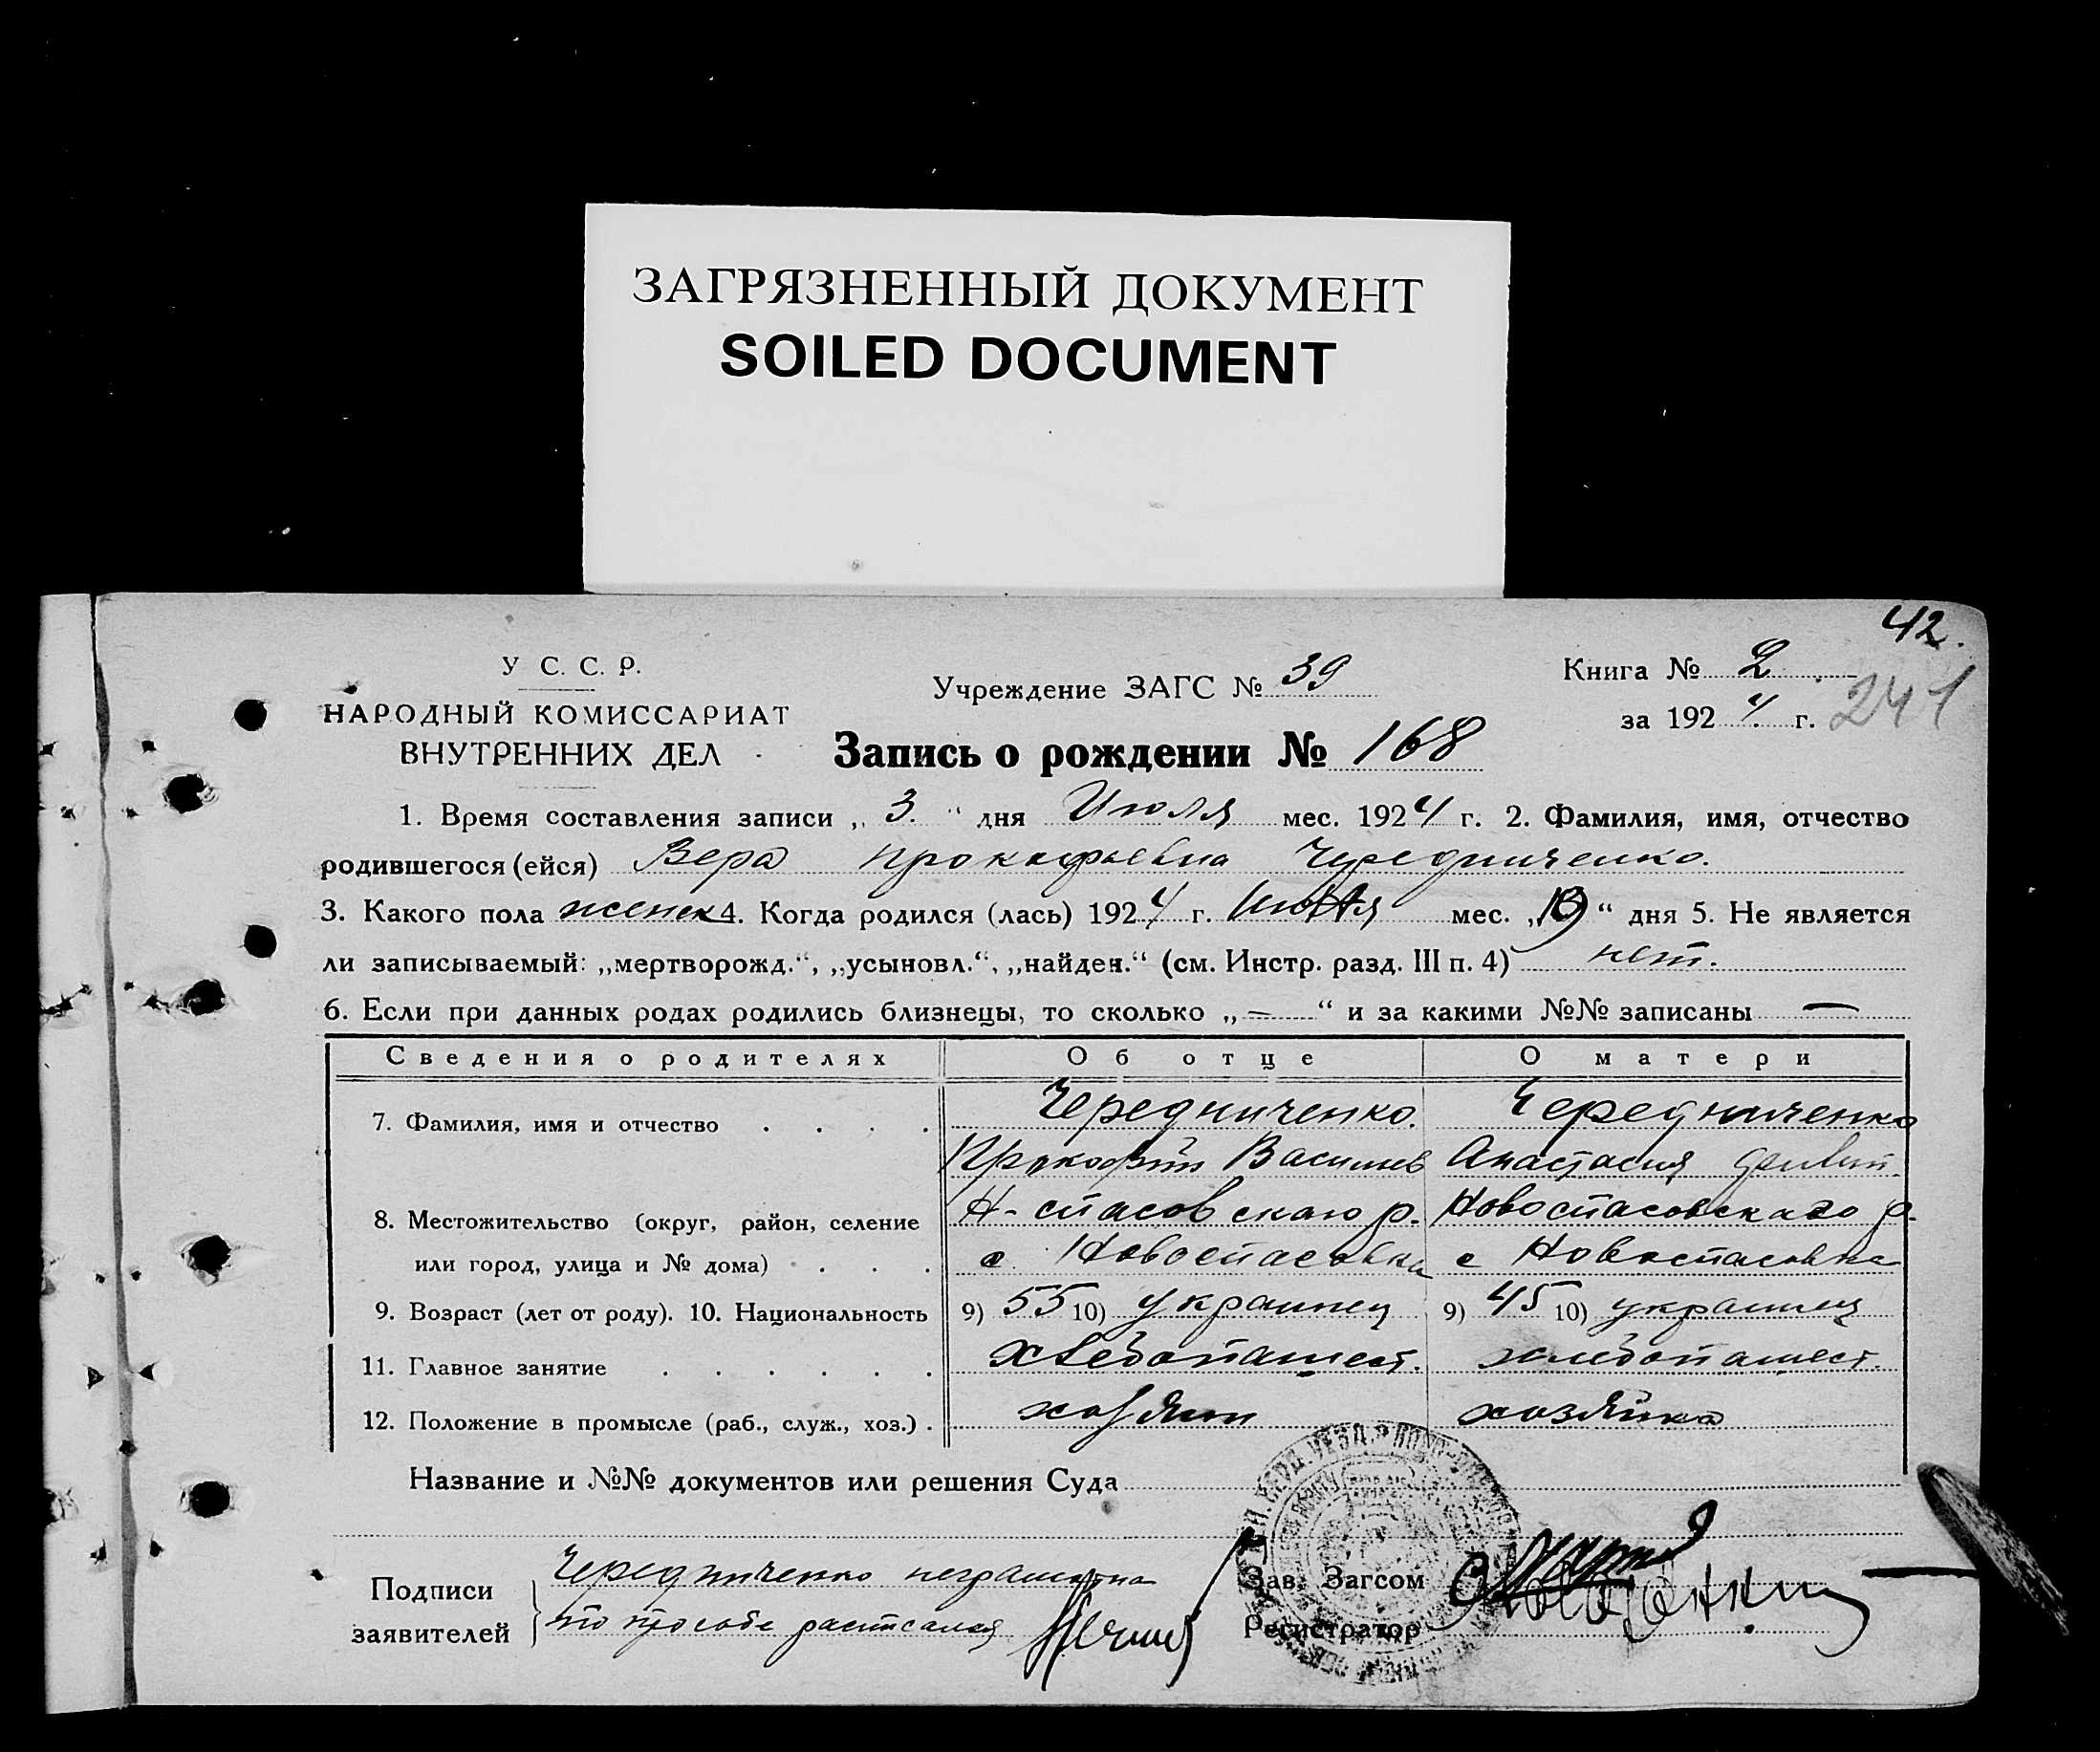 ЗАГРЯЗНЕННЫЙ ДОКУМЕНТ
SOILED DOCUMENT
42.
У С. С. Р.
НАРОДНЫЙ КОМИССАРИАТ
ВНУТРЕННИХ ДЕЛ
Учреждение ЗАГС № 39
Книга № 2
за 1924 г. 241
Запись о рождении № 168
1. Время составления записи „ 3. “ дня Июля мес. 1924 г. 2. Фамилия, имя, отчество
родившегося (ейся) Вера Прокофьевна Чередниченко.
3. Какого пола женск 4. Когда родился (лась) 1924 г. мес. „ “ дня 5. Не является
ли записываемый: „мертворожд.“, „усыновл.“, „найден.“ (см. Инстр. разд. III п. 4) нет.
6. Если при данных родах родились близнецы, то сколько „ — “ и за какими №№ записаны —
Сведения о родителях Об отце О матери
7. Фамилия, имя и отчество . . . . Чередниченко. Чередниченко
Прокофий Васильев Анастасия
Н-спасовскаго р. Новоспасовскаго р.
8. Местожительство (округ, район, селение
или город, улица и № дома) . . . . с. Новоспасовка с Новоспасовка
9. Возраст (лет от роду). 10. Национальность 9) 55 10) украинец 9) 45 10) украинец
11. Главное занятие . . . . . . хлебопашест. хлебопашест.
12. Положение в промысле (раб., служ., хоз.) . хозяин хозяйка
Название и №№ документов или решения Суда
Подписи
заявителей
Чередниченко неграмотна
по просьбе расписался
Зав. Загсом
Регистратор